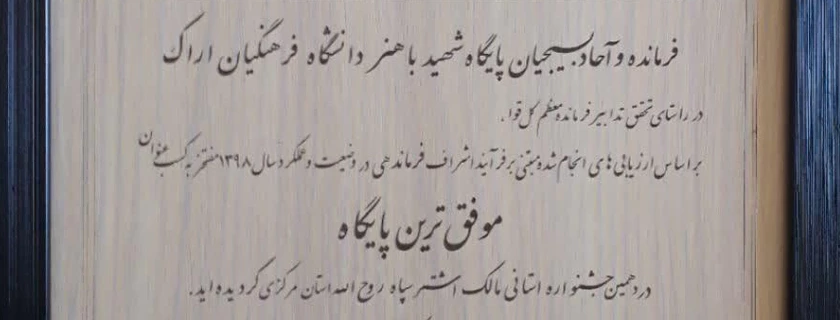 فرمانده و آحاد بسیجیان پایگاه شهید باهنر دانشگاه فرهنگیان اراک
در راستای تحقق تدابیر فرمانده معظم کل قوا،
بر اساس ارزیابی های انجام شده مبتنی بر فرآیند اشراف فرماندهی در وضعیت و عملکرد سال ۱۳۹۸ مفتخر به کسب عنوان
موفق ترین پایگاه
در دهمین جشنواره استانی مالک اشتر سپاه روح الله استان مرکزی گردیده اید.